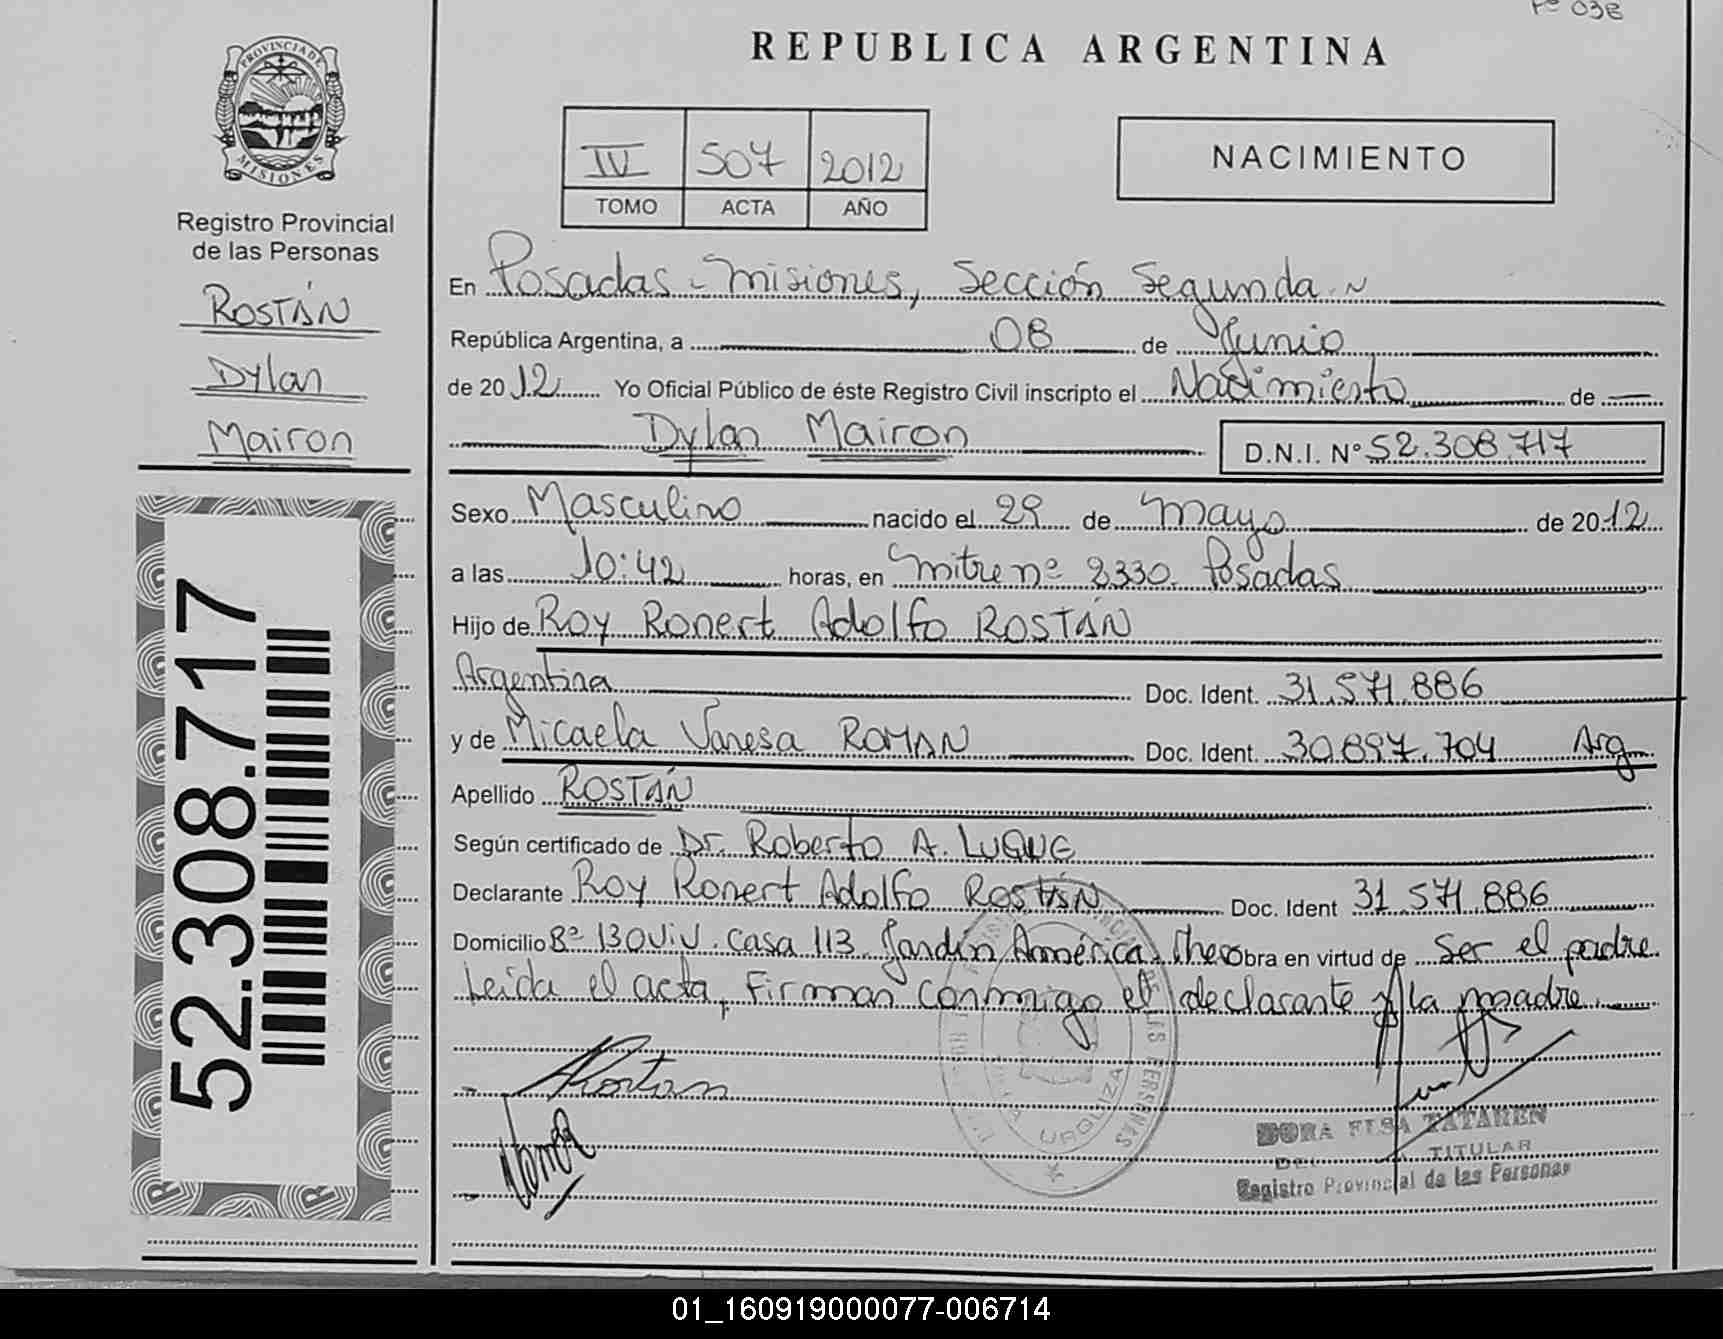 Fº 038
REPUBLICA ARGENTINA
PROVINCIA DE MISIONES
Registro Provincial
de las Personas
ROSTÁN
Dylan
Mairon
52.308.717
IV 507 2012
TOMO ACTA AÑO
NACIMIENTO
En Posadas - Misiones, Sección Segunda
República Argentina, a 08 de Junio
de 2012 Yo Oficial Público de éste Registro Civil inscripto el Nacimiento de
Dylan Mairon D.N.I. Nº 52.308.717
Sexo Masculino nacido el 29 de Mayo de 2012
a las 10:42 horas, en Mitre nº 2330. Posadas
Hijo de Roy Ronert Adolfo ROSTÁN
Argentina Doc. Ident. 31.571.886
y de Micaela Vanesa ROMAN Doc. Ident. 30.897.704 Arg
Apellido ROSTÁN
Según certificado de Dr. Roberto A. LUQUE
Declarante Roy Ronert Adolfo ROSTÁN Doc. Ident 31.571.886
Domicilio Bº 130 Viv. Casa 113. Jardín América. Obra en virtud de Ser el padre
Leída el acta, Firman conmigo el declarante y la madre.
Rostan
DORA ELSA TATAREN
TITULAR
Registro Provincial de las Personas
DE LAS PERSONAS
URQUIZA
01_160919000077-006714